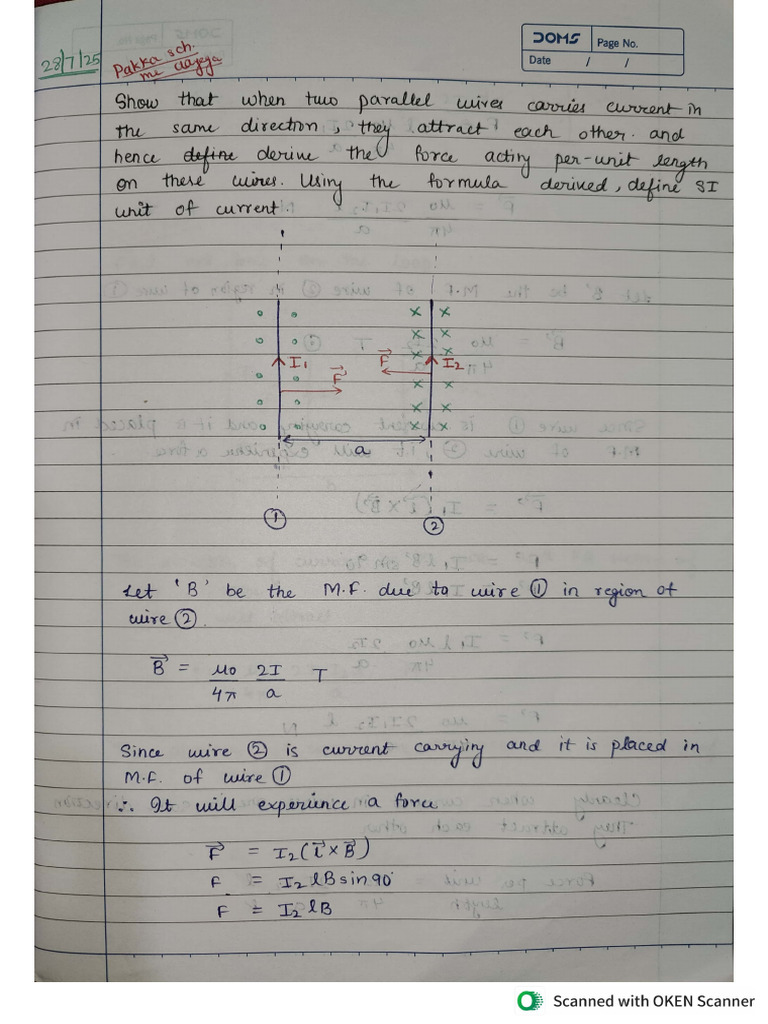 DOMS
Page No.
Date / /
28/7/25
Pakka sch.
me aayega
Show that when two parallel wires carries current in
the same direction, they attract each other. and
hence define derive the force acting per-unit length
on these wires. Using the formula derived, define SI
unit of current.
I₁ F⃗ F⃗ I₂
a
① ②
Let 'B' be the M.F. due to wire ① in region of
wire ②.
B⃗ = μ₀/4π 2I/a T
Since wire ② is current carrying and it is placed in
M.F. of wire ①
∴ It will experience a force
F⃗ = I₂(l⃗×B⃗)
F = I₂lBsin90°
F = I₂lB
Scanned with OKEN Scanner